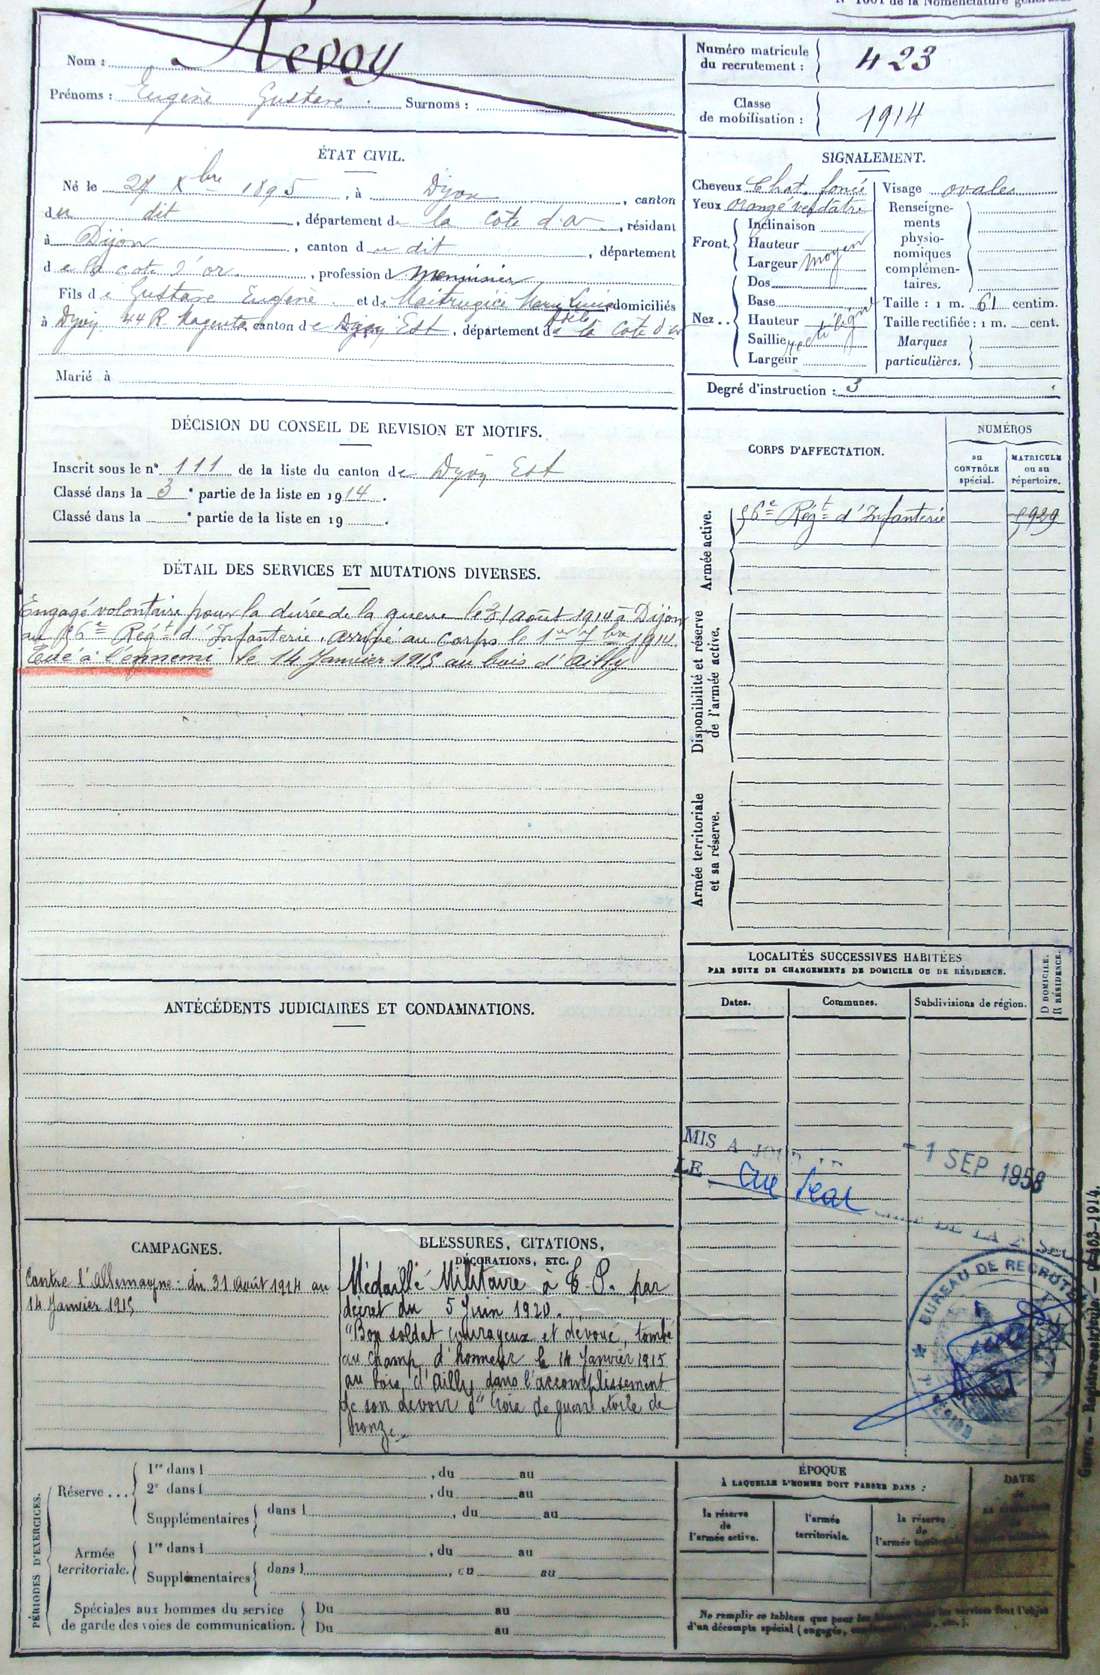 N° 1001 de la Nomenclature générale
Nom : Revoy
Prénoms : Eugène Gustave. Surnoms :
Numéro matricule du recrutement : 423
Classe de mobilisation : 1914
ÉTAT CIVIL.
Né le 27 Xbre 1895, à Dijon, canton
du dit, département de la Cote d'or, résidant
à Dijon, canton du dit, département
de la cote d'or, profession de menuisier
Fils de Gustave Eugène et de Marie domiciliés
à Dijon 44 R Magenta canton de Dijon Est, département de la Cote d'or
Marié à
SIGNALEMENT.
Cheveux Chat. foncé
Yeux orangé verdâtre
Front. Inclinaison
Hauteur
Largeur moyen
Nez.. Dos
Base
Hauteur
Saillie rectiligne
Largeur
Visage ovale
Renseignements physionomiques complémentaires.
Taille : 1 m. 61 centim.
Taille rectifiée : 1 m. cent.
Marques particulières.
Degré d'instruction : 3
DÉCISION DU CONSEIL DE REVISION ET MOTIFS.
Inscrit sous le n° 111 de la liste du canton de Dijon Est
Classé dans la 3e partie de la liste en 1914.
Classé dans la e partie de la liste en 19
CORPS D'AFFECTATION.
NUMÉROS
au CONTRÔLE spécial.
MATRICULE ou au répertoire.
Armée active.
56e Régt d'Infanterie
5929
Disponibilité et réserve de l'armée active.
Armée territoriale et sa réserve.
DÉTAIL DES SERVICES ET MUTATIONS DIVERSES.
Engagé volontaire pour la durée de la guerre le 31 août 1914 à Dijon
au 56e Régt d'Infanterie. Arrivé au corps le 1er 7bre 1914.
Tué à l'ennemi le 14 Janvier 1915 au bois d'Ailly
ANTÉCÉDENTS JUDICIAIRES ET CONDAMNATIONS.
LOCALITÉS SUCCESSIVES HABITÉES
PAR SUITE DE CHANGEMENTS DE DOMICILE OU DE RÉSIDENCE.
Dates. Communes. Subdivisions de région. D DOMICILE. R RÉSIDENCE.
MIS A JOUR
LE
- 1 SEP 1958
DE LA 2e
BUREAU DE RECRUT
CAMPAGNES.
Contre l'Allemagne : du 31 Août 1914 au
14 Janvier 1915
BLESSURES, CITATIONS,
DÉCORATIONS, ETC.
Médaillé Militaire à T. P. par
décret du 5 Juin 1920.
"Bon soldat courageux et dévoué, tombé
au champ d'honneur le 14 Janvier 1915
au bois d'Ailly dans l'accomplissement
de son devoir" Croix de guerre étoile de
bronze
PÉRIODES D'EXERCICES.
Réserve... 1re dans l , du au
2e dans l , du au
Supplémentaires dans l , du au
Armée territoriale. 1re dans l , du au
Supplémentaires dans l , du au
Spéciales aux hommes du service
de garde des voies de communication.
Du au
Du au
ÉPOQUE
À LAQUELLE L'HOMME DOIT PASSER DANS :
la réserve de l'armée active.
l'armée territoriale.
la réserve de l'armée territoriale
DATE
Ne remplir ce tableau que pour les
d'un décompte spécial (engagés,
Guerre. — Registre matricule. — 1914.